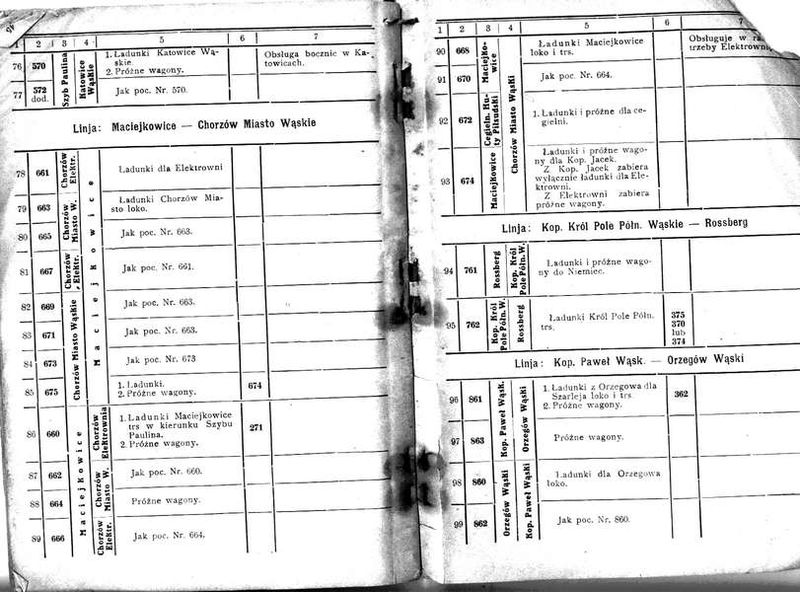 1 2 3 4 5 6 7
76 570 Szyb Paulina Katowice Wąskie 1. Ładunki Katowice Wą-
skie.
2. Próżne wagony.
Obsługa bocznic w Ka-
towicach.
77 572
dod.
Jak poc. Nr. 570.
Linja: Maciejkowice — Chorzów Miasto Wąskie
78 661 Chorzów Elektr. Maciejkowice Ładunki dla Elektrowni
79 663 Chorzów Miasto W. Ładunki Chorzów Mia-
sto loko.
80 665 Jak poc. Nr. 663.
81 667 Chorzów Elektr. Jak poc. Nr. 661.
82 669 Chorzów Miasto Wąskie Jak poc. Nr. 663.
83 671 Jak poc. Nr. 663.
84 673 Jak poc. Nr 673
85 675 1. Ładunki.
2. Próżne wagony.
674
86 660 Maciejkowice Chorzów Elektrownia 1. Ładunki Maciejkowice
trs w kierunku Szybu
Paulina.
2. Próżne wagony.
271
87 662 Chorzów Miasto W. Jak poc. Nr. 660.
88 664 Próżne wagony.
89 666 Chorzów Elektr. Jak poc. Nr. 664.
1 2 3 4 5 6 7
90 668 Maciejko-
wice
Chorzów Miasto Wąski
Ładunki Maciejkowice
loko i trs.
Obsługuje w
trzeby Elektrowni
91 670 Jak poc. Nr. 664.
92 672 Cegieln. Hu-
ty Piłsudski
1. Ładunki i próżne dla ce-
gielni.
93 674 Maciejkowice Ładunki i próżne wago-
ny dla Kop. Jacek.
Z Kop. Jacek zabiera
wyłącznie ładunki dla Ele-
ktrowni.
Z Elektrowni zabiera
próżne wagony.
Linja: Kop. Król Pole Półn. Wąskie — Rossberg
94 761 Rossberg Kop. Król
Pole Półn. W.
Ładunki i próżne wago-
ny do Niemiec.
95 762 Kop. Król
Pole Półn. W.
Rossberg
Ładunki Król Pole Półn.
trs.
375
370
lub
374
Linja: Kop. Paweł Wąsk. — Orzegów Wąski
96 861 Kop. Paweł Wąsk. Orzegów Wąski 1. Ładunki z Orzegowa dla
Szarleja loko i trs
2. Próżne wagony.
362
97 863 Próżne wagony.
98 860 Orzegów Wąski Kop. Paweł Wąski Ładunki dla Orzegowa
loko.
99 862 Jak poc. Nr. 860.